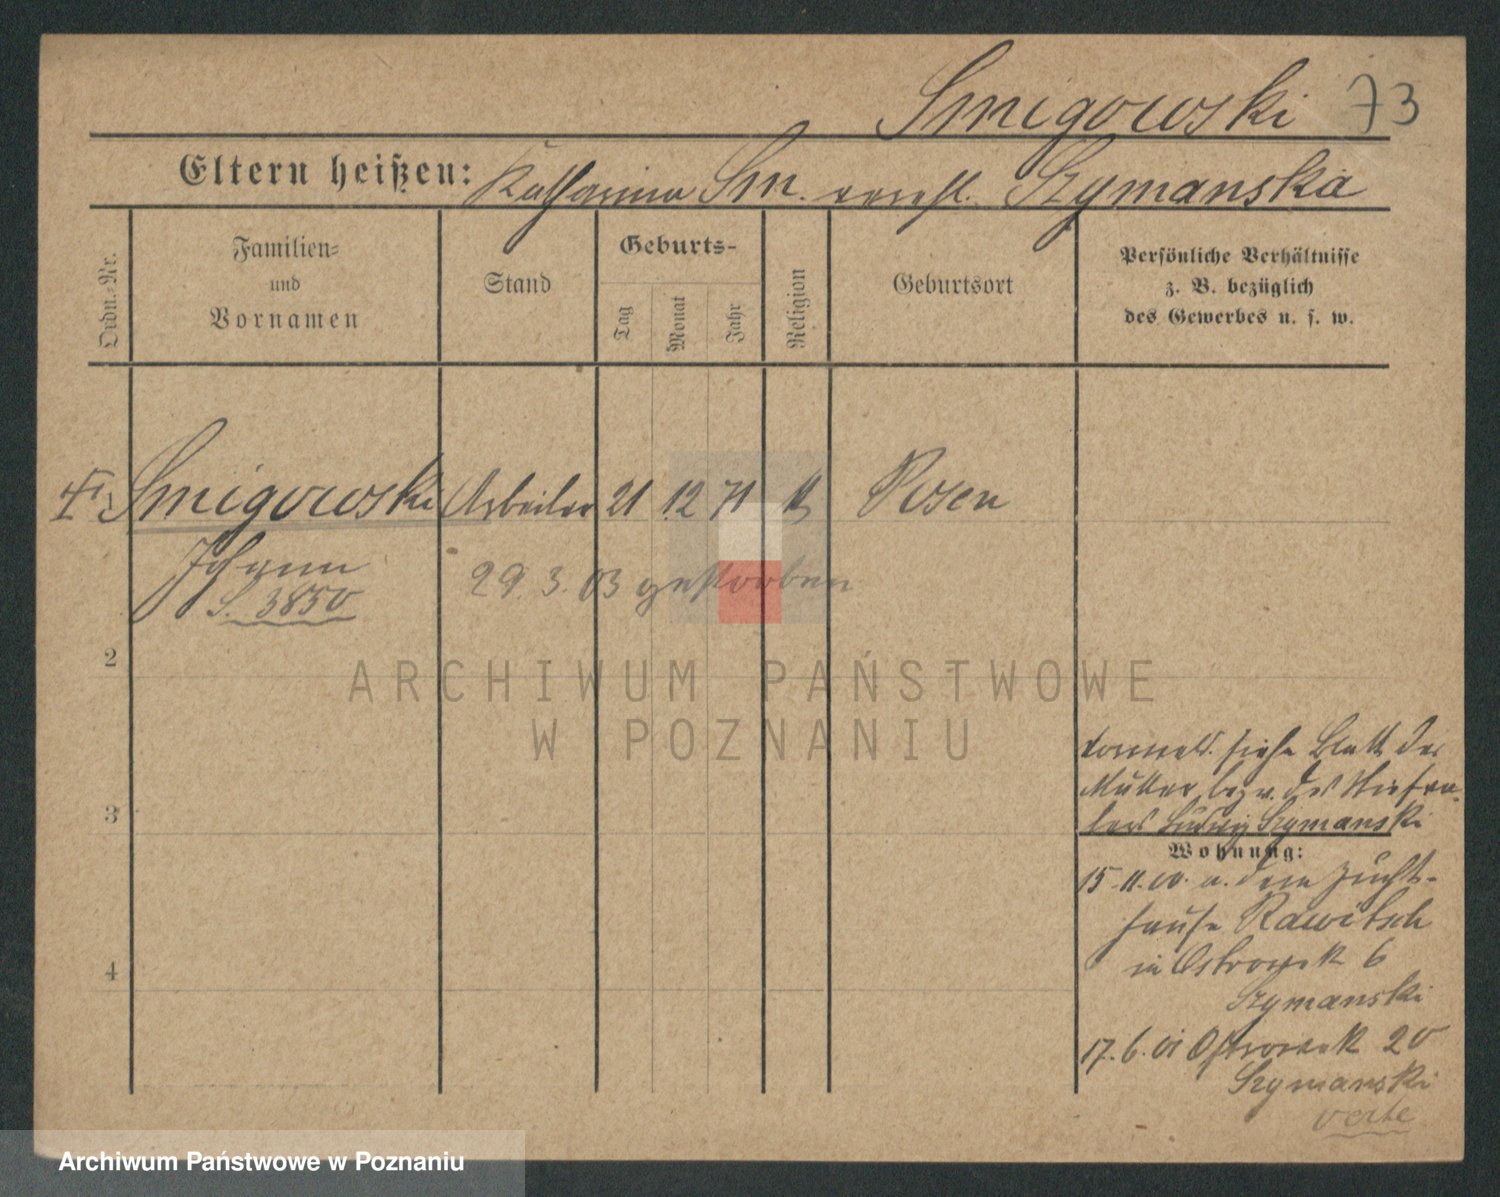 Smigowski 73
Eltern heißen: Katharina Sm. verehl. Szymanska
Ordn.-Nr.
Familien-
und
Vornamen
Stand
Geburts-
Tag
Monat
Jahr
Religion
Geburtsort
Persönliche Verhältnisse
z. B. bezüglich
des Gewerbes u. s. w.
Smigowski Arbeiter 21 12 71 k Posen
Johann
S. 3850
29. 3. 03 gestorben
2
3
4
siehe Blatt der
Mutter bezw. des Stiefva-
ters Ludwig Szymanski
Wohnung:
15.11.00. a. dem Zucht-
hause Rawitsch
in Ostrowek 6
Szymanski
17.6.01 Ostrowek 20
Szymanski
verte
ARCHIWUM PAŃSTWOWE
W POZNANIU
Archiwum Państwowe w Poznaniu